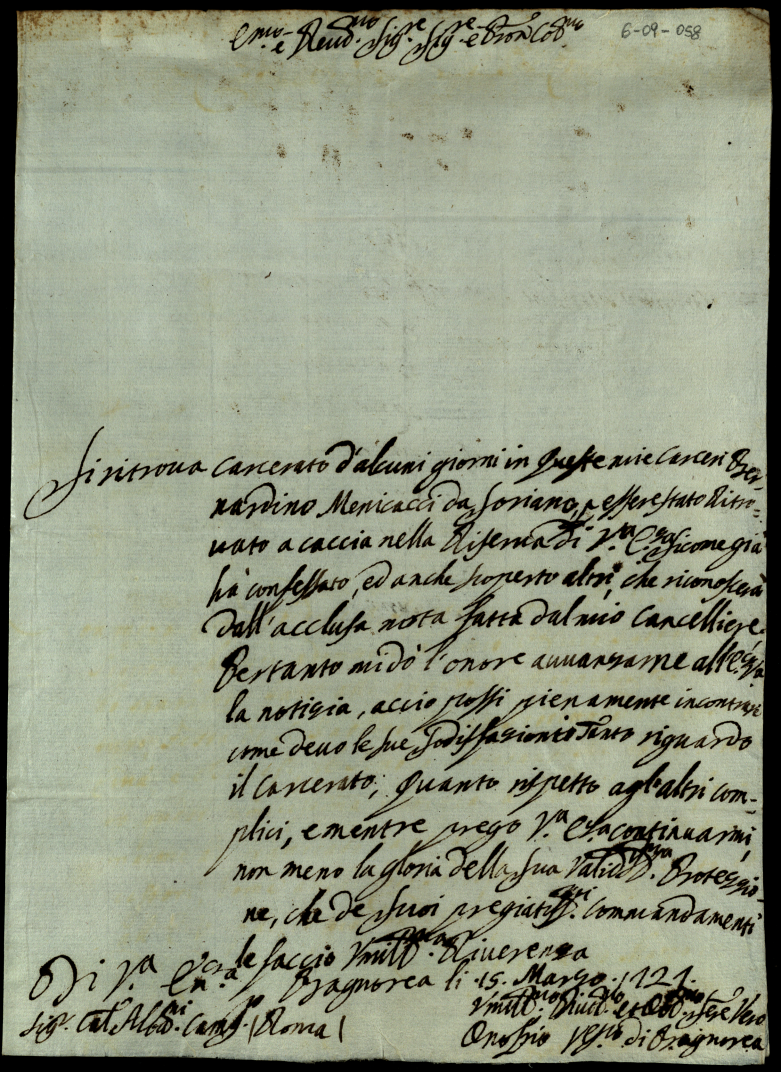 Em.mo e Reud.mo Sig.re Sig.re e Pron Col.mo
6-09-058
Si ritroua carcerato d'alcuni giorni in queste mie Carceri Ber-
nardino Menicacci da Soriano, p essere stato Ritro-
uato a caccia nella Riserua di V.ra Em.za sicome già
hà confessato, ed anche scoperto altri, che riconoscerà
dall'acclusa nota fatta dal mio Cancelliere.
Pertanto mi dò l'onore auuanzarne all'
la notizia, acciò possi pienamente incontrare
come deuo le sue sodisfazioni tanto riguardo
il Carcerato, quanto rispetto agl'altri com-
plici, e mentre prego V.ra Em.za continuarmi
non meno la gloria della sua Validiss.ma Protezzio-
ne, che de suoi pregiatiss.mi commandamenti
le faccio Vmiliss.ma Riuerenza
Di V.ra Em.za Bagnorea li 15. Marzo 1721.
Vmiliss.mo Diuot.mo et Obl.mo Ser.re Vero
Sig.r Car.l Albani Camer.go (Roma) Onofrio Vesc.o di Bagnorea